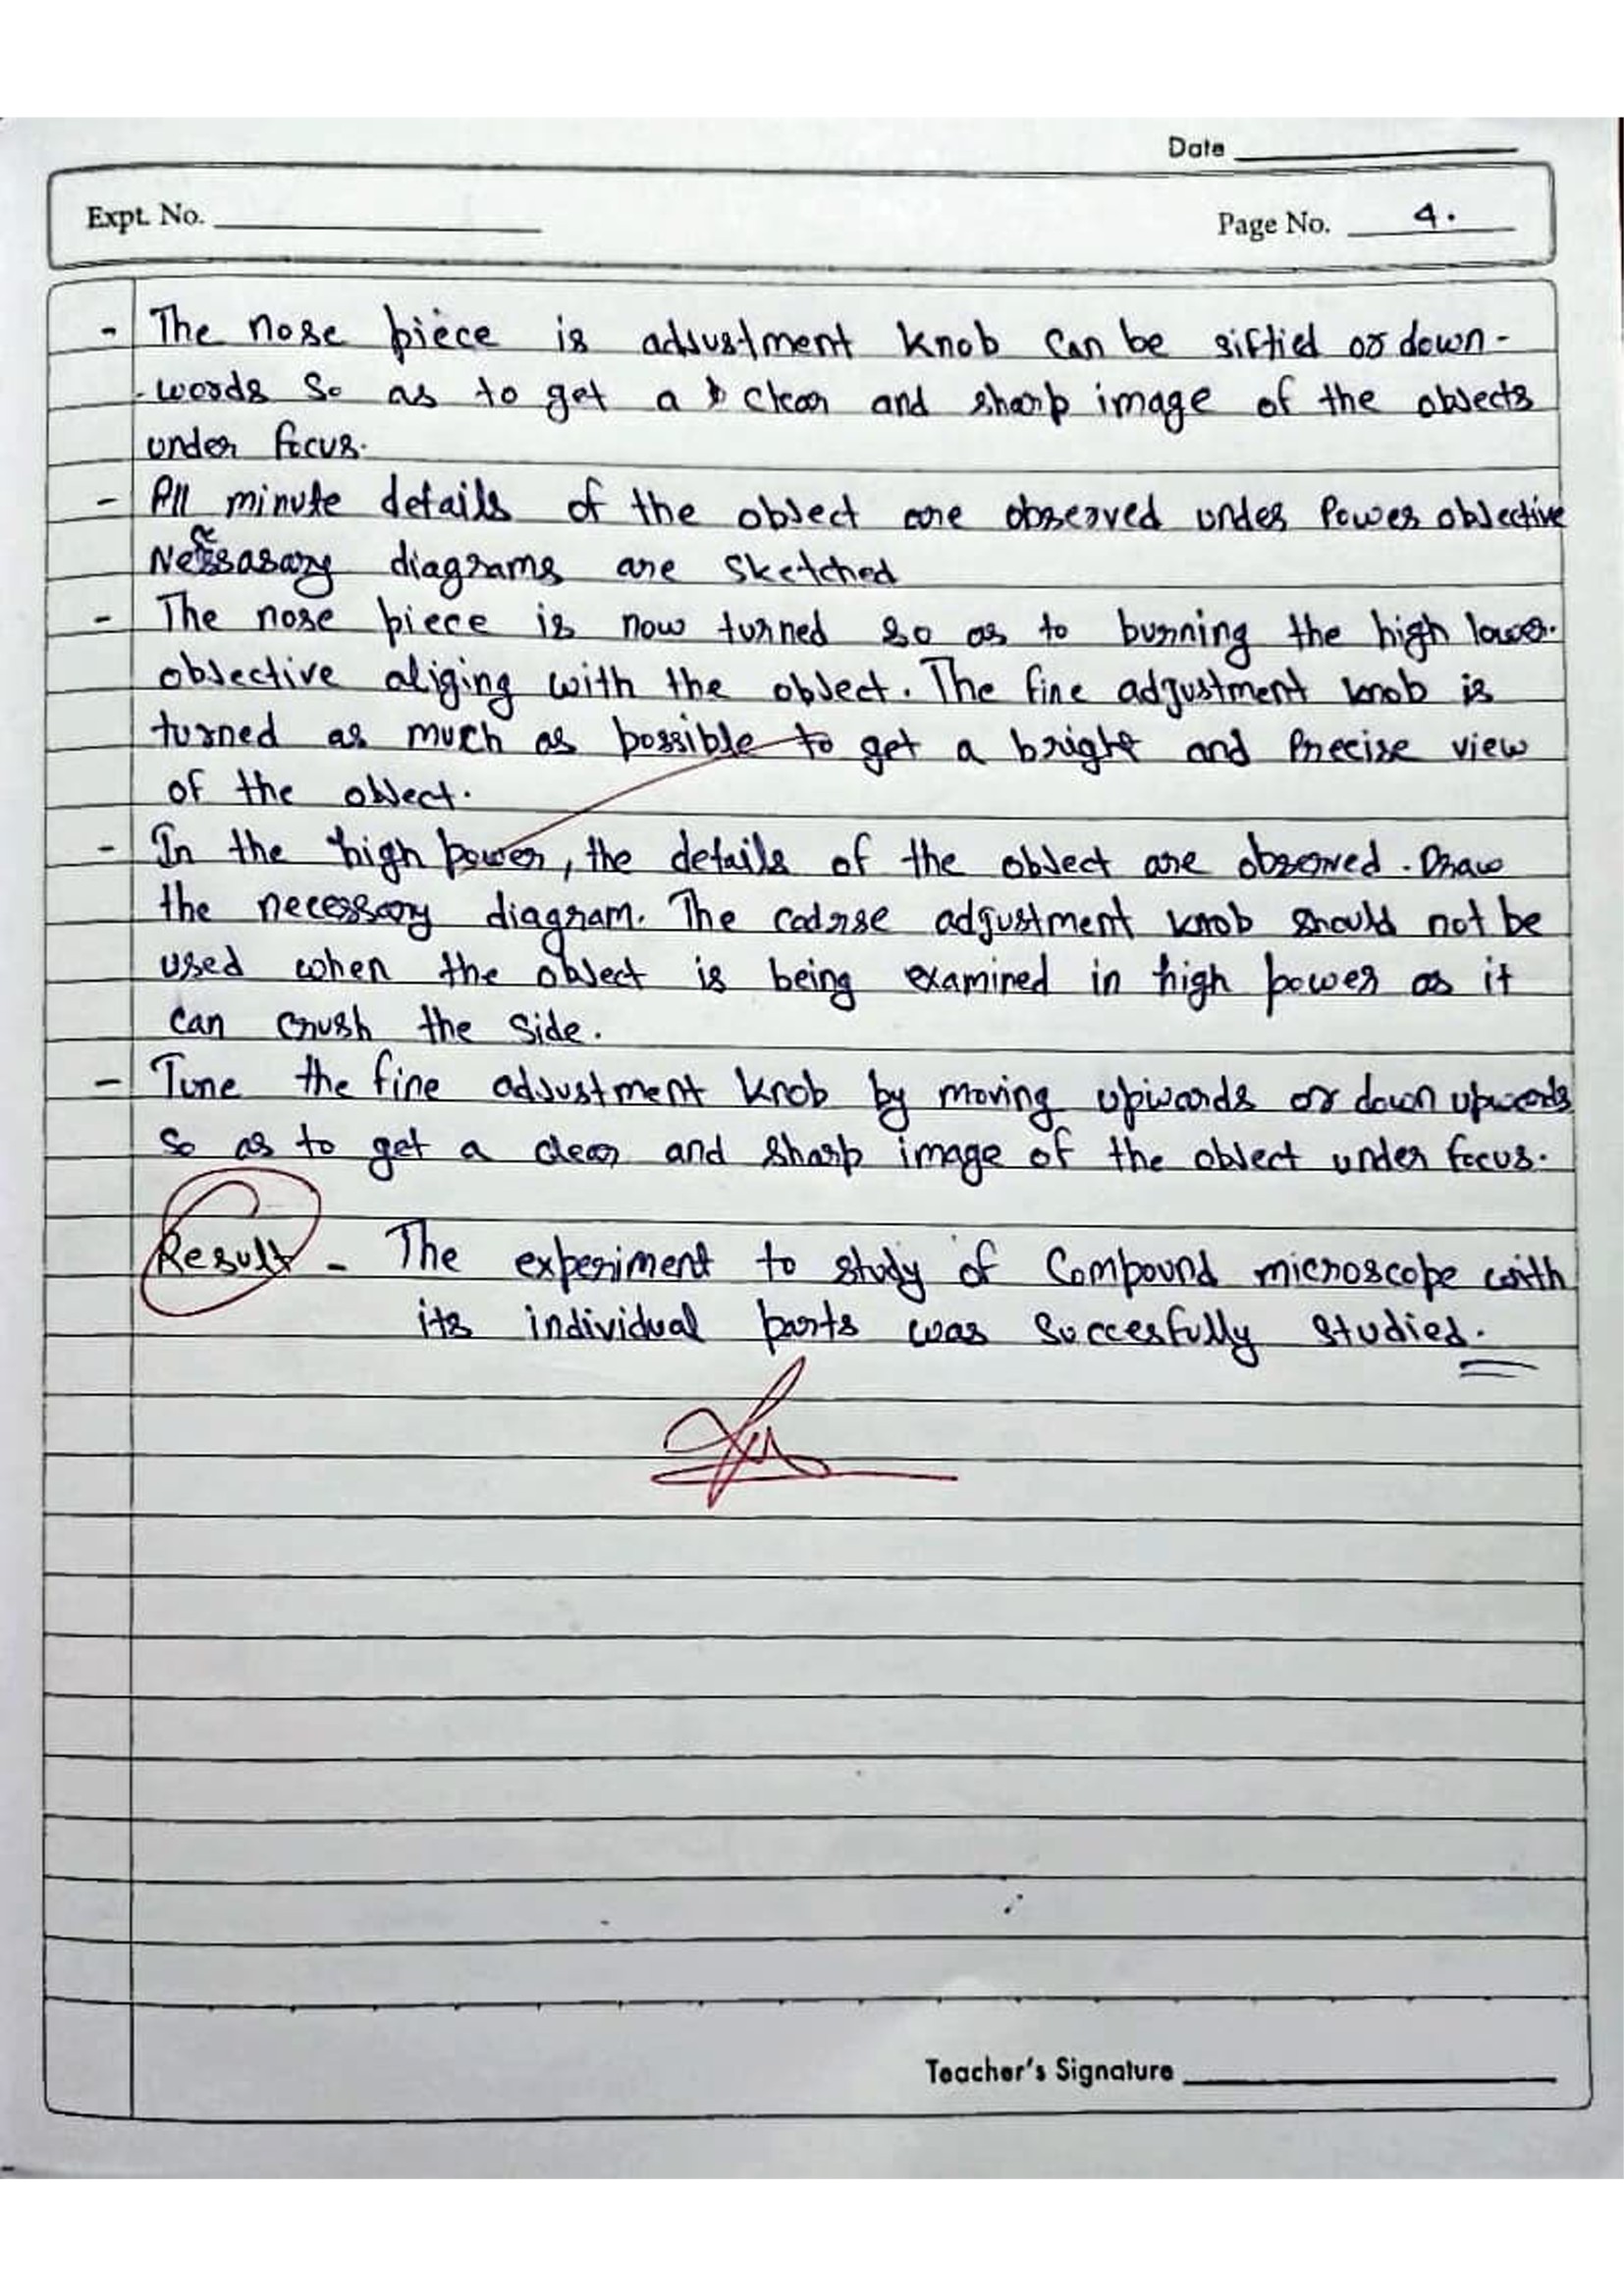 Date
Expt. No.
Page No. 4.
- The nose piece is adsustment knob can be siftied or down-
-words so as to get a clear and sharp image of the obsects
under focus.
- All minute details of the obsect are observed under Power obsective
Necessasary diagrams are sketched
- The nose piece is now turned so as to burning the high lower.
obsective aliging with the object. The fine adjustment knob is
turned as much as possible to get a bright and Precise view
of the obsect.
- In the high power, the details of the object are observed. Draw
the necessary diagram. The coarse adjustment knob should not be
used when the obsect is being examined in high power as it
can crush the side.
- Tune the fine adsustment knob by moving upiwards or down upwords
so as to get a clear and sharp image of the obsect under focus.
Result - The experiment to study of Compound microscope with
its individual parts was succesfully studied.
Teacher's Signature